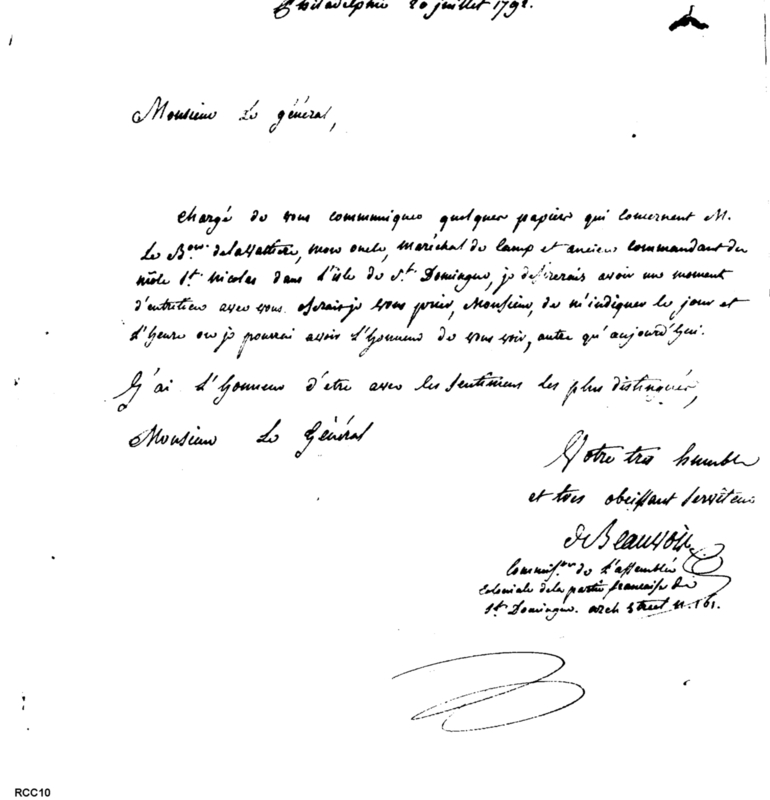 Philadelphie 20 juillet 1792.
Monsieur Le général,
chargé de vous communiquer quelques papiers qui concernent M.
Le Bon. de la Valtiere, mon oncle, maréchal de Camp et ancien commandant du
môle St. Nicolas dans l'isle de St. Domingue, je desirerais avoir un moment
d'entretien avec vous. oserais-je vous prier, Monsieur, de m'indiquer le jour et
L'heure ou je pourrai avoir L'honneur de vous voir, autre qu'aujourd'hui.
J'ai L'honneur d'etre avec les sentimens les plus distingués,
Monsieur Le Général
Votre tres humble
et tres obeissant serviteur
de Beauvois
Commissre. de L'assemblée
Coloniale de la partie francaise de
St. Domingue. arch street n. 161.
RCC10